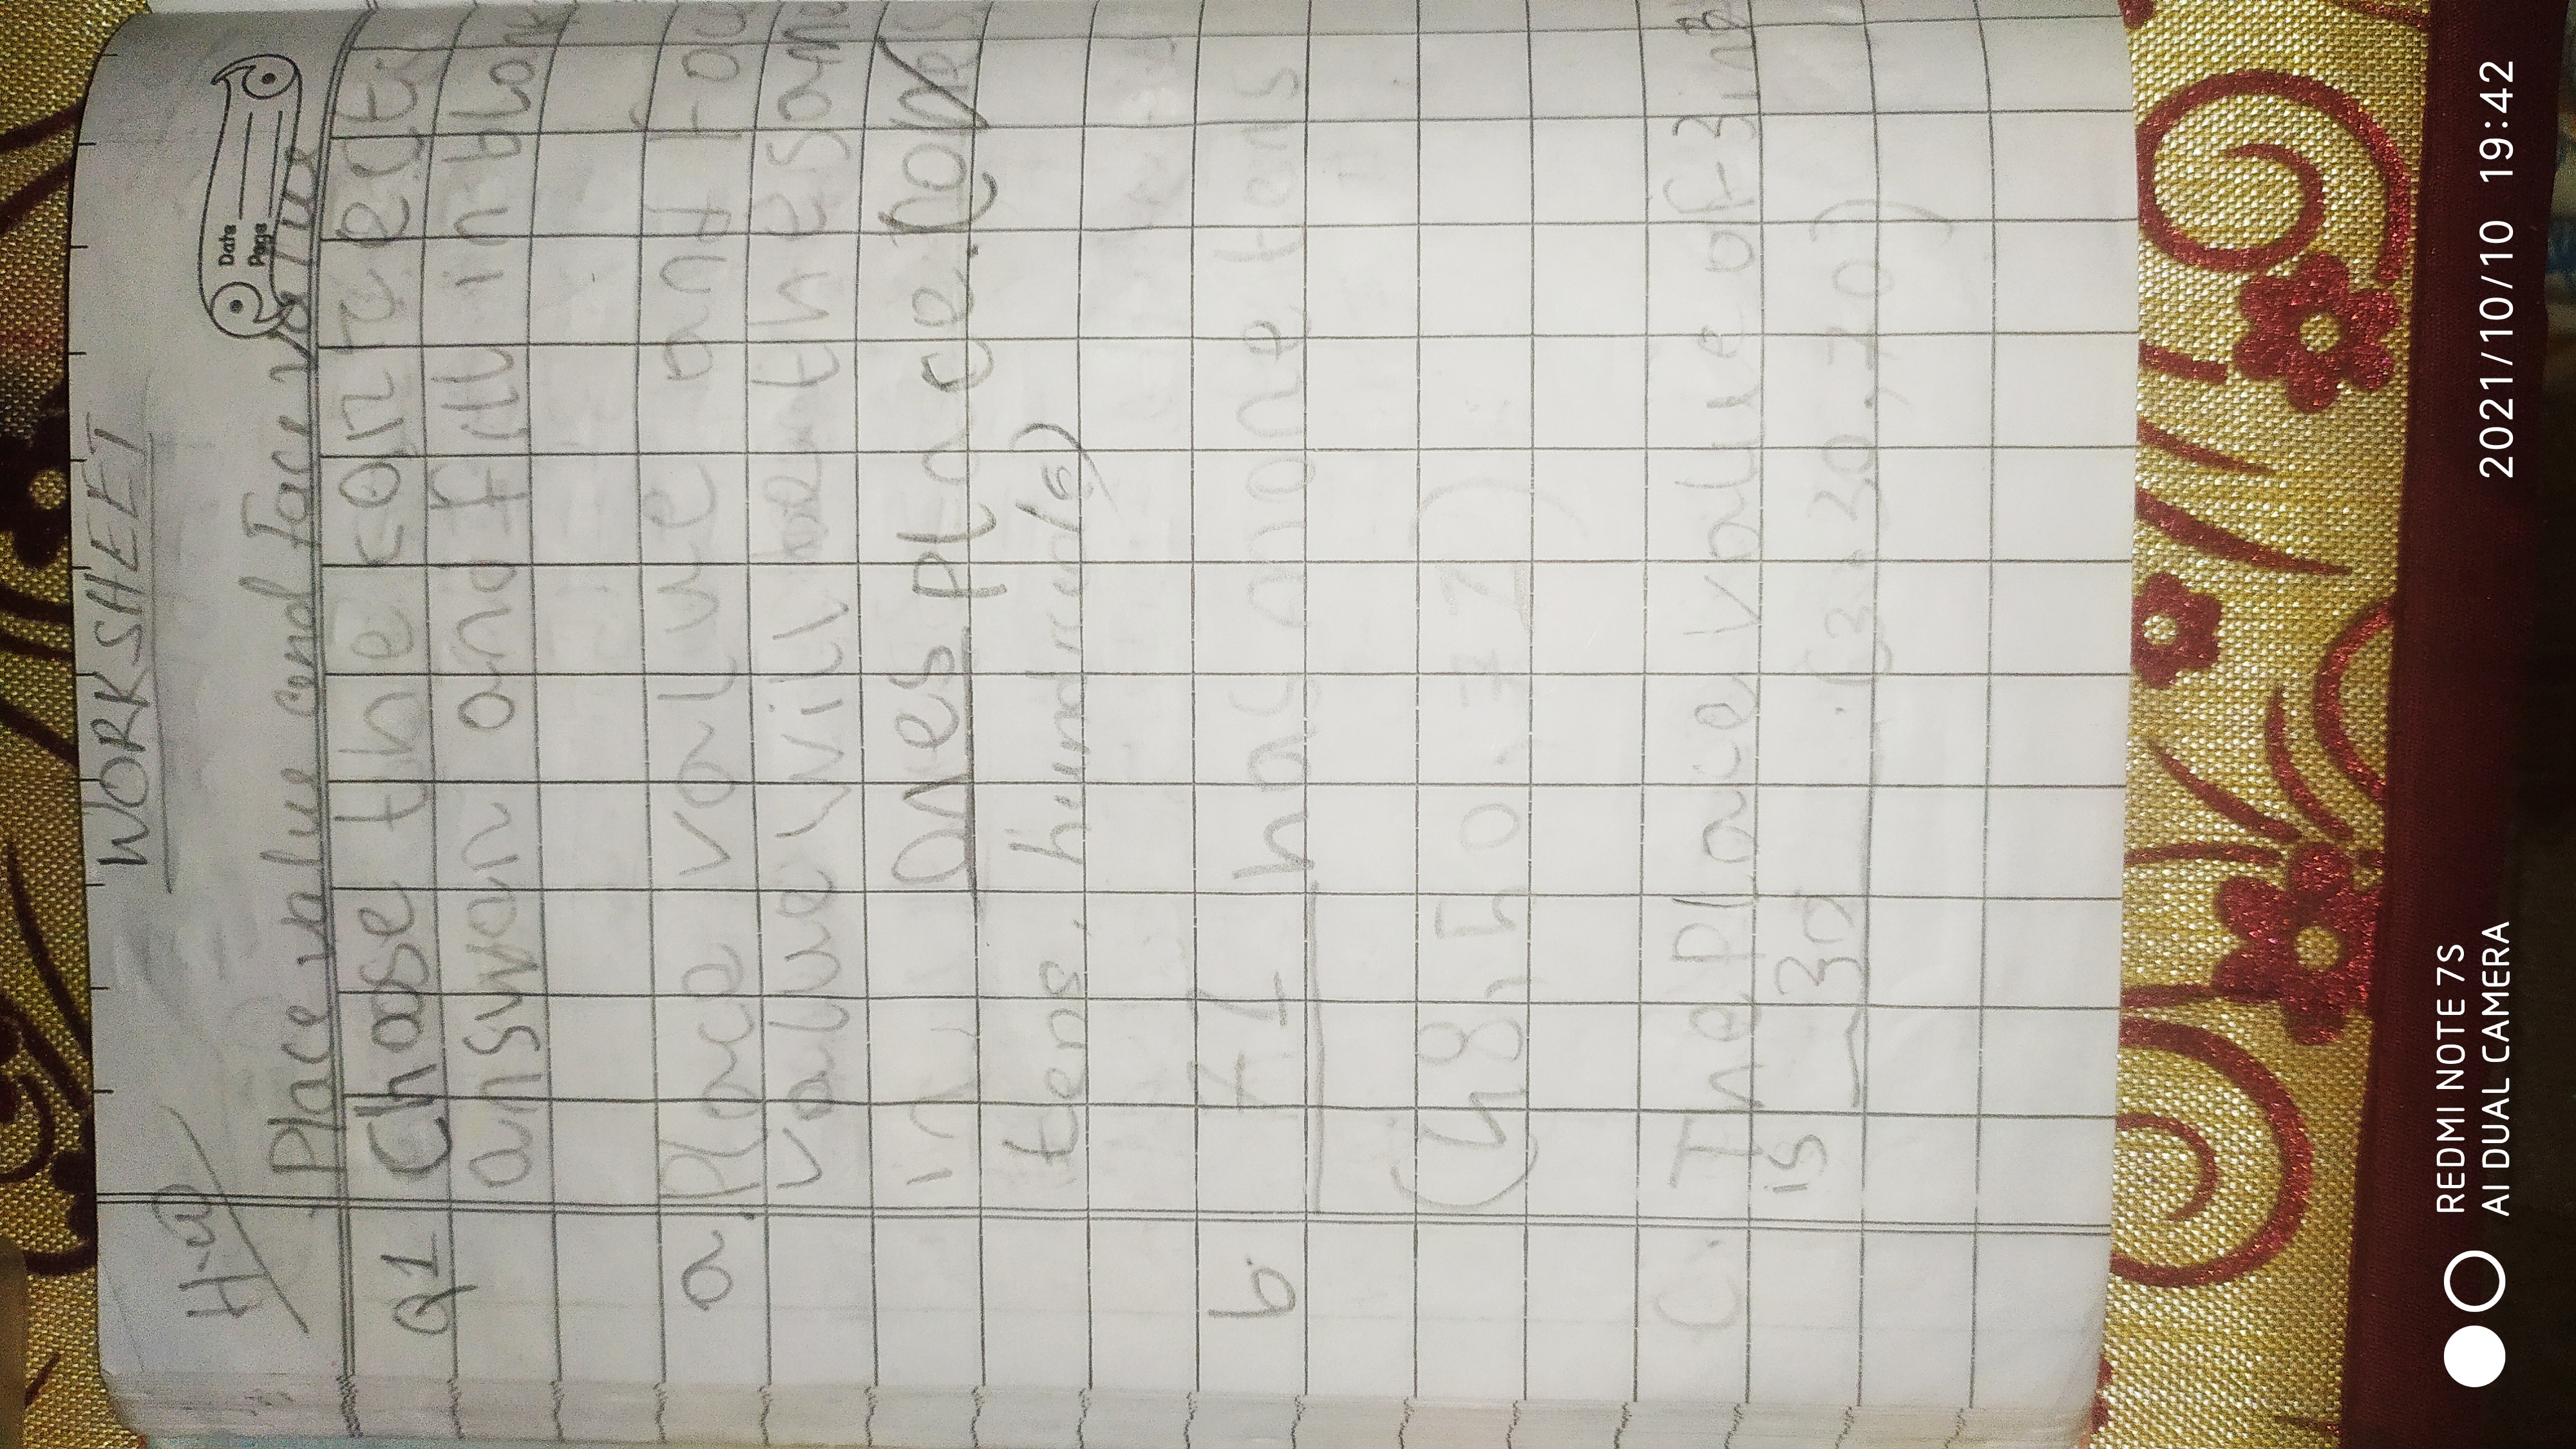 H.W
WORKSHEET
Date
Page
Place value and Face value
Q1 Choose the correct
answar and fill in blank
a. Place value and Fac
value will be the same
in ones place. (ones
tens, hundreds)
b. 71 has more tens
(48, 50, 71)
C. The Place value of 3 in
is 30 (3, 30, 70)
REDMI NOTE 7S
AI DUAL CAMERA
2021/10/10 19:42